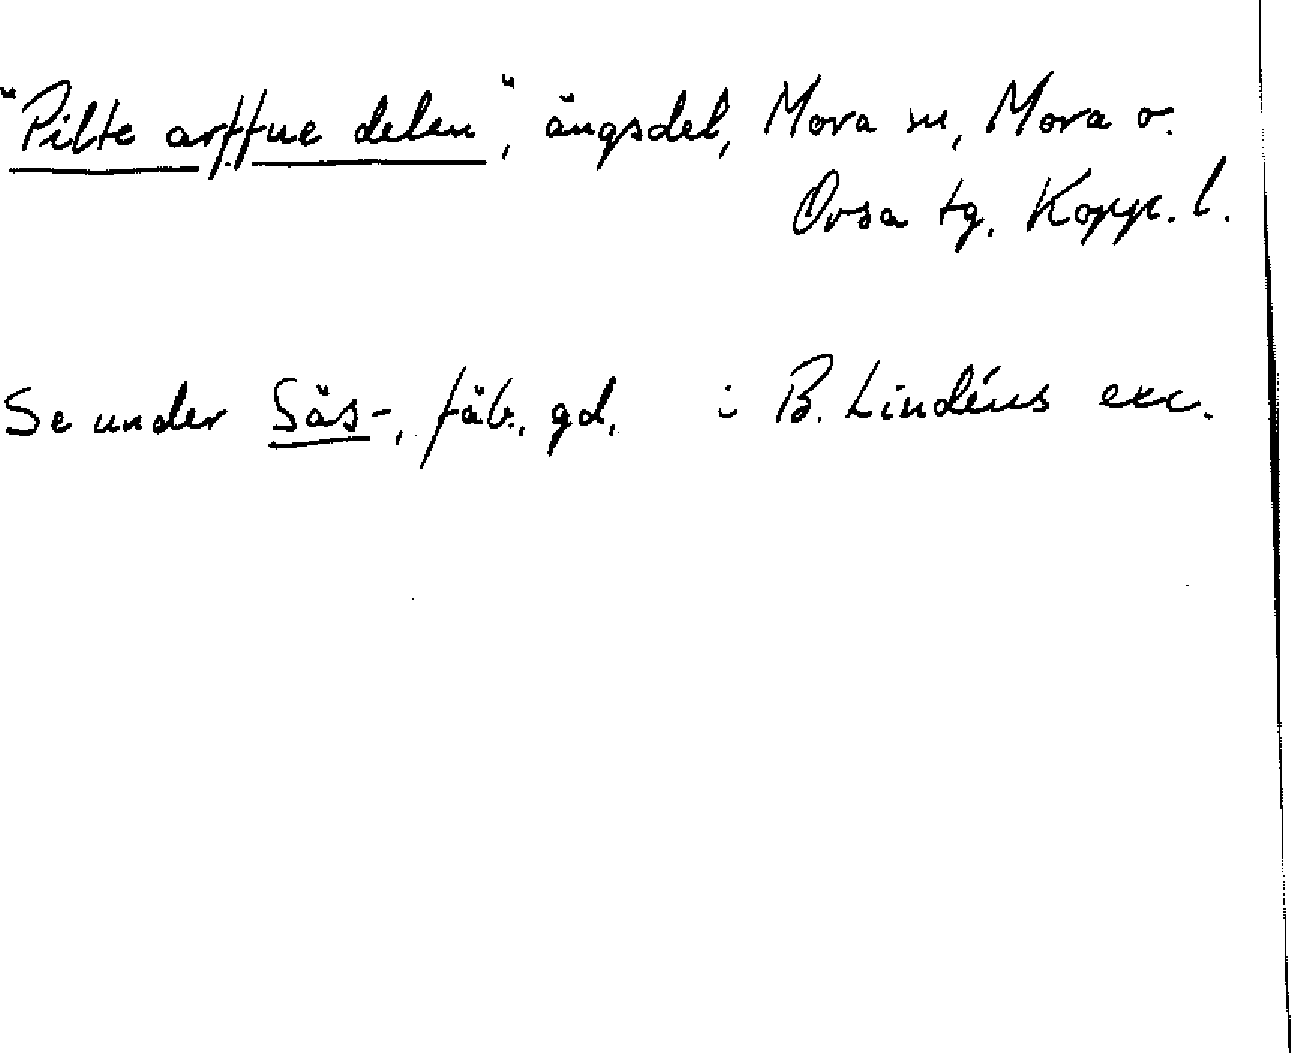 "Pilte arffue delen", ängsdel, Mora sn, Mora o.
Orsa tg. Kopp. l.
Se under Säs-, fäb., gd, i B. Lindéns exc.